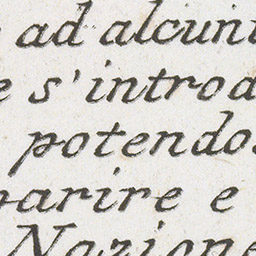 ad alcuni
e s'introd
potendo
parire e
Nazione